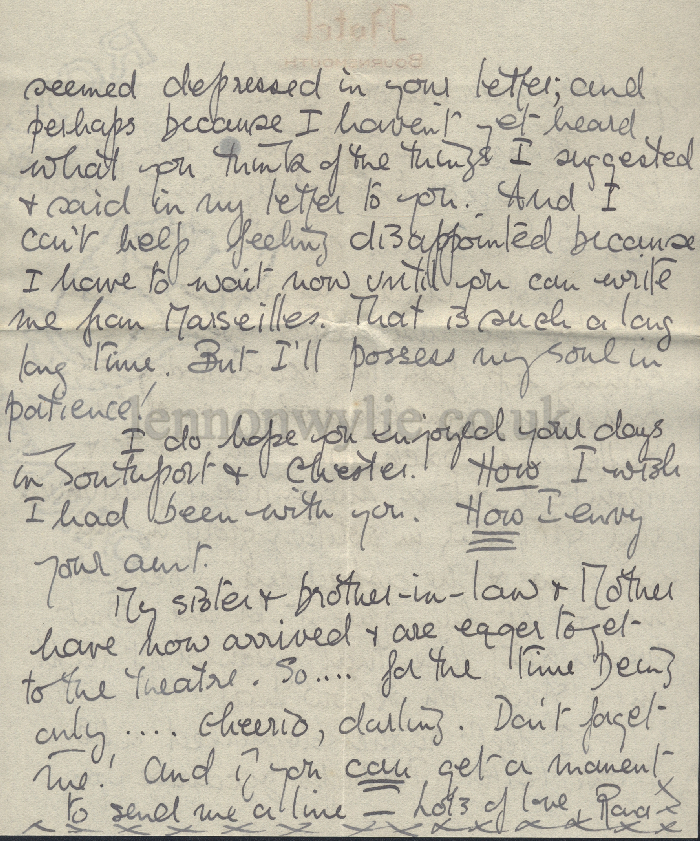 seemed depressed in your letter; and
perhaps because I haven't yet heard
what you think of the things I suggested
& said in my letter to you. And I
can't help feeling disappointed because
I have to wait now until you can write
me from Marseilles. That is such a long
long time. But I'll possess my soul in
patience!
lennonwylie.co.uk
I do hope you enjoyed your days
in Southport & Chester. How I wish
I had been with you. How I envy
your aunt.
My sister & brother-in-law & Mother
have now arrived & are eager to get
to the theatre. So.... for the time being
only .... cheerio, darling. Don't forget
me! And if you can get a moment
to send me a line = Lots of love,